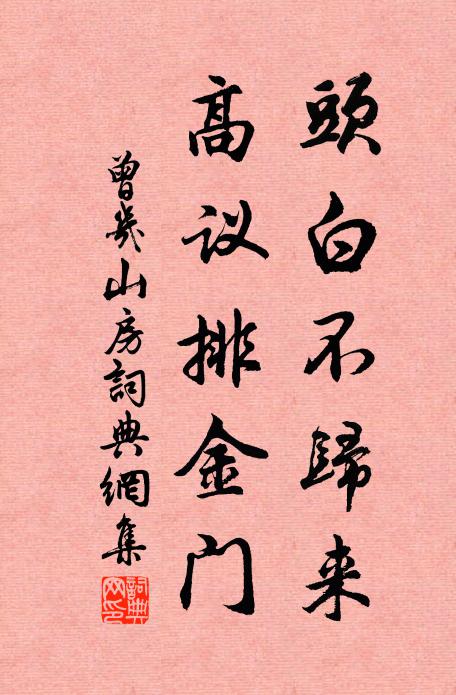 頭白不歸来
高议排金门
曾幾山房詞典網集
詞典网印